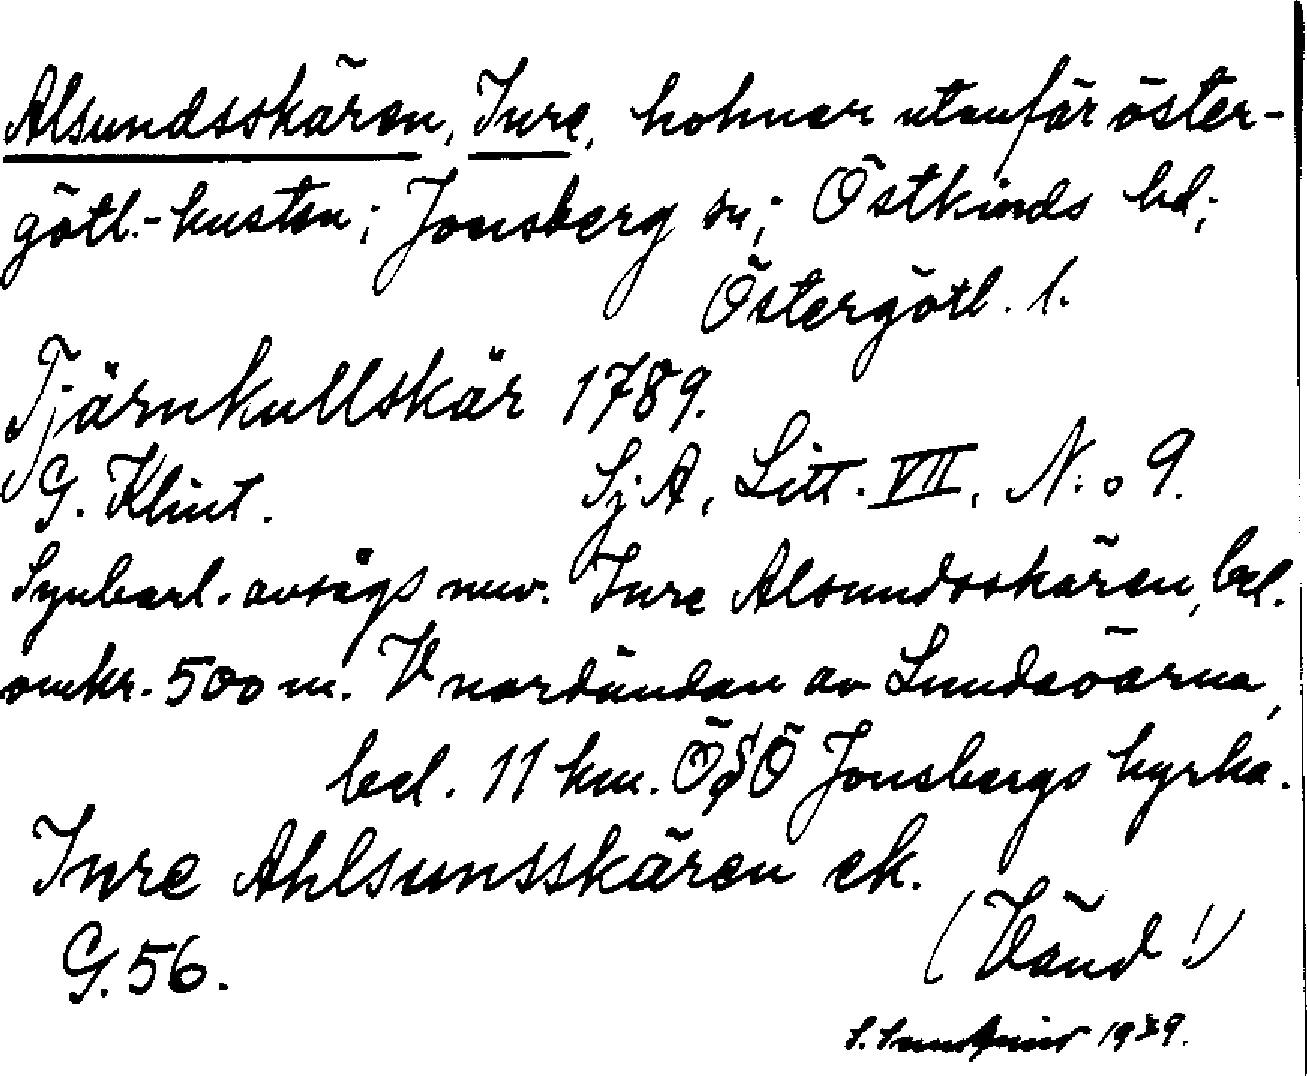 Alsundsskären, Inre, holmar utanför öster-
götl.-kusten; Jonsberg sn; Östkinds hd;
Östergötl. l.
Tjärnkullskär 1789.
G. Klint. Sj.A, Litt. VII, N:o 9.
Synbarl. avsågs nuv. Inre Alsundsskären, bel.
omkr. 500 m. V nordändan av Lundaöarna,
bel. 11 km. ÖSÖ Jonsbergs kyrka.
Inre Ahlsunsskären ek.
G. 56. (Vänd!)
S. 1939.